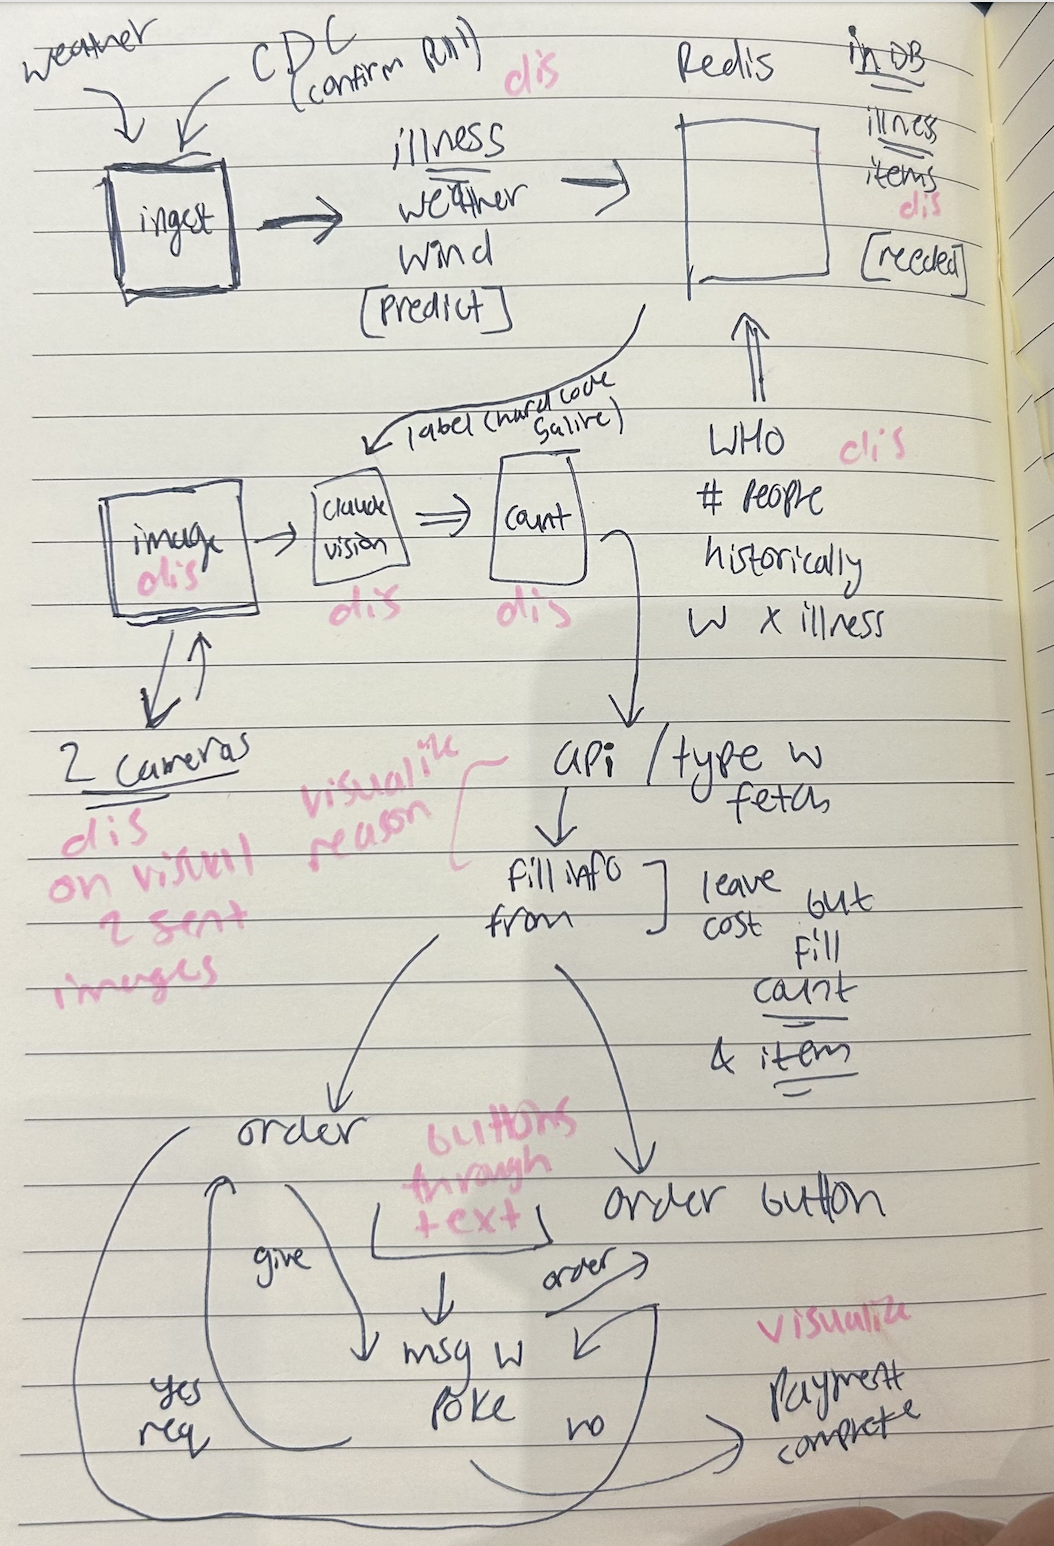 weather
CDC
(confirm pull)
dis
Redis
in DB
illness
items
dis
[needed]
ingest
illness
weather
wind
[predict]
label (hard code
saline)
WHO
dis
# people
historically
w x illness
image
dis
claude
vision
dis
count
dis
2 cameras
dis
on visual
2 sent
images
visualize
reason
api / type w
fetch
fill info
from
leave
cost but
fill
count
& item
order
buttons
through
text
order button
give
order
msg w
poke
yes
req
no
visualize
payment
complete